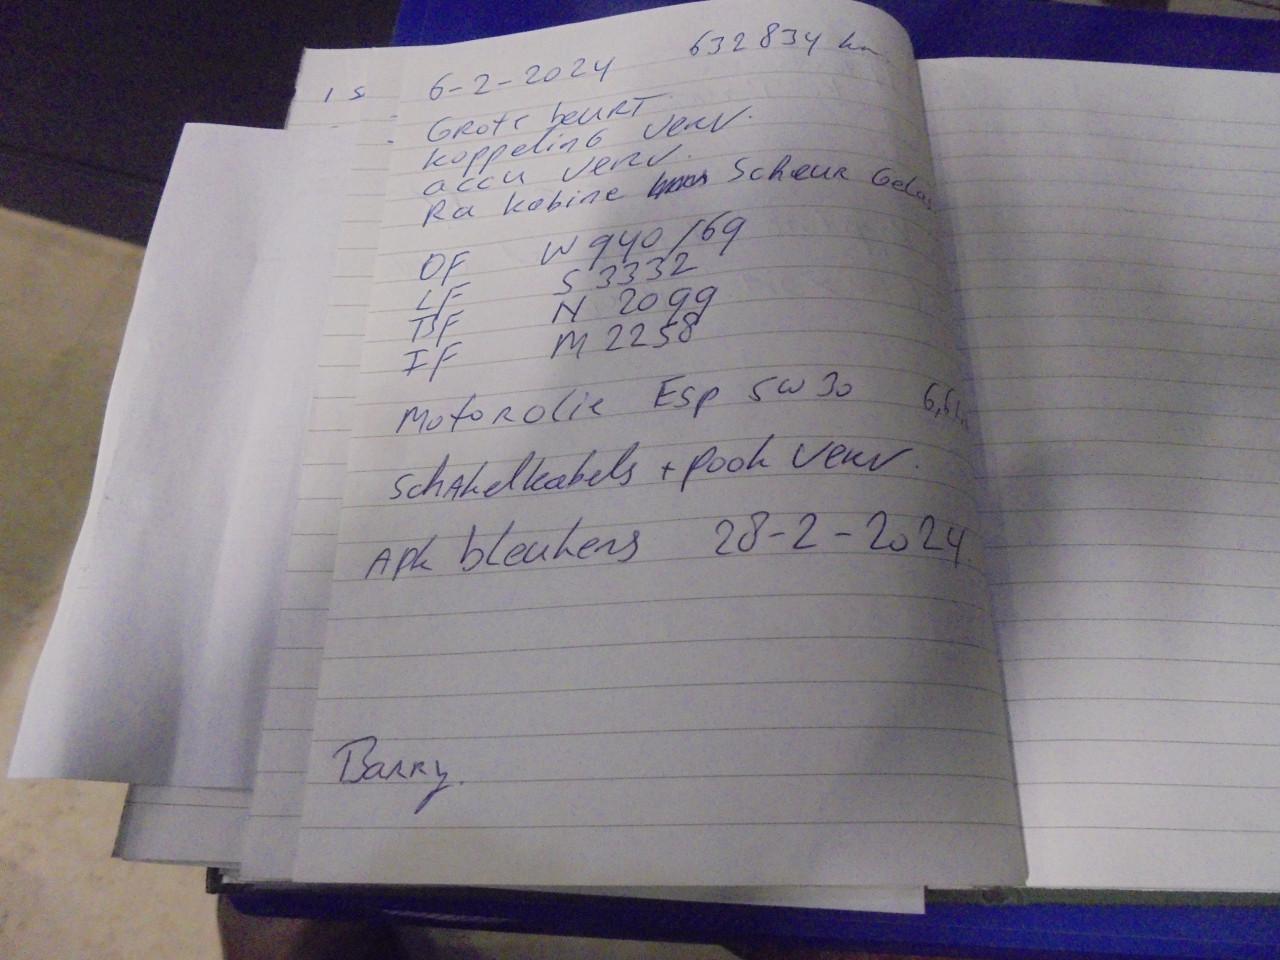 6-2-2024 632834 km
Grote beurt
koppeling verv.
accu verv.
Ra kabine Scheur Gelas
OF W 940/69
LF S 3332
BF N 2099
IF M 2258
Motorolie Esp 5W30 6,6
Schakelkabels + pook verv.
Apk blenkens 28-2-2024.
Barry.